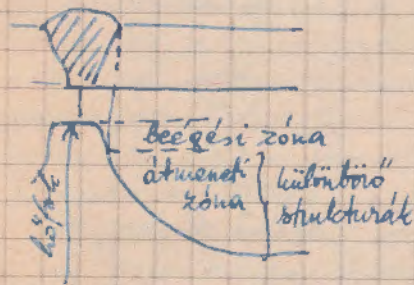 beégési zóna
átmeneti
zóna
különböző
struktúrák